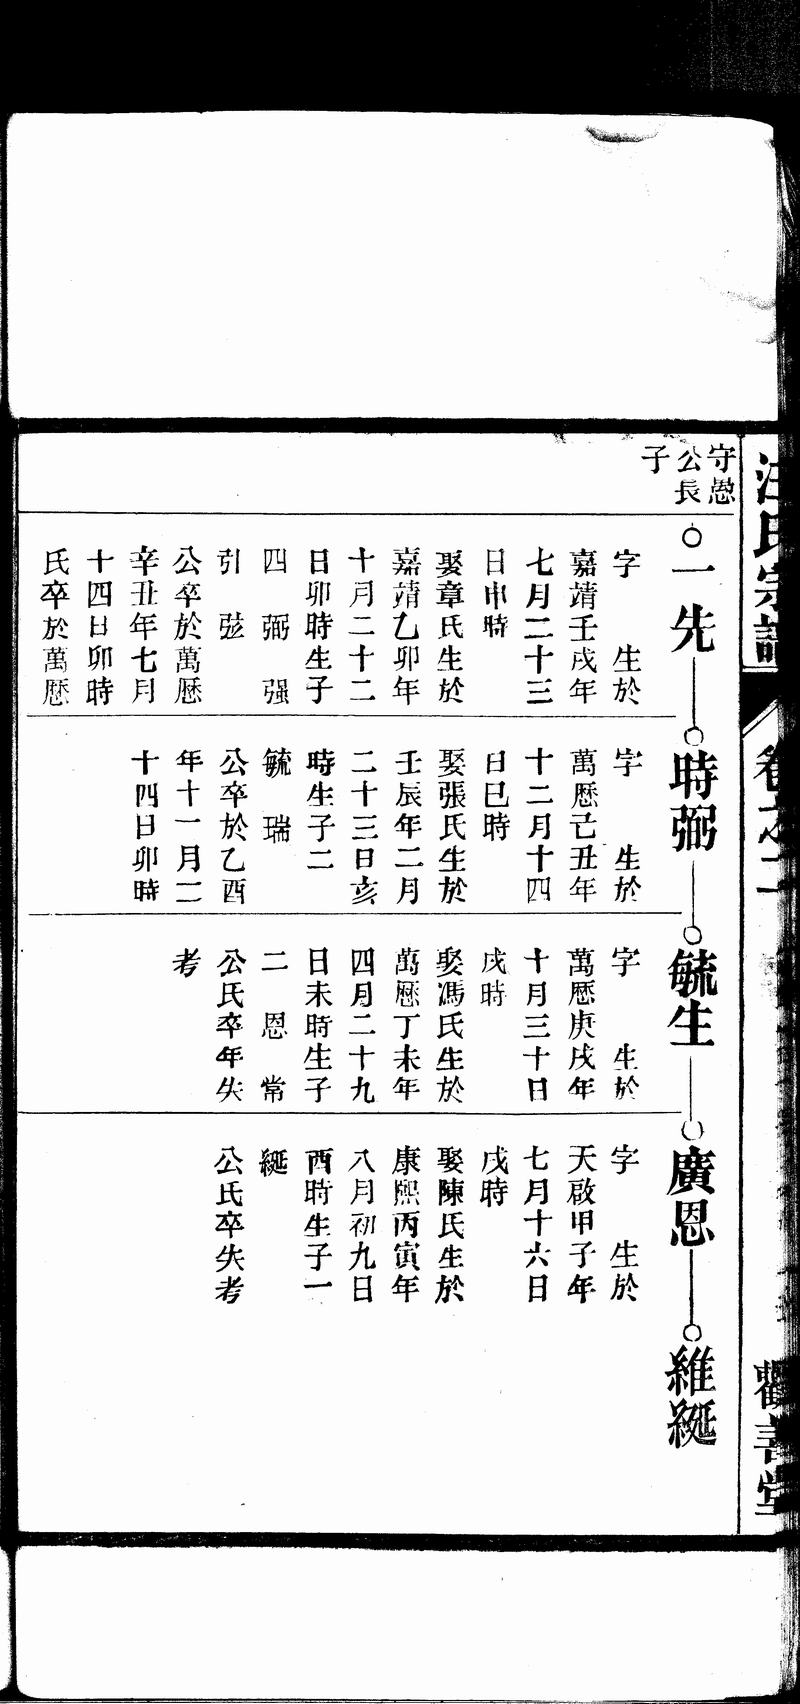 汪氏宗譜
卷之二
觀善堂
守愚
公長
子
一先
時弼
毓生
廣恩
維綖
字　生於
嘉靖壬戌年
七月二十三
日申時
娶章氏生於
嘉靖乙卯年
十月二十二
日卯時生子
四　弼　强
引　弦
公卒於萬曆
辛丑年七月
十四日卯時
氏卒於萬曆
字　生於
萬曆己丑年
十二月十四
日巳時
娶張氏生於
壬辰年二月
二十三日亥
時生子二
毓　瑞
公卒於乙酉
年十一月二
十四日卯時
字　生於
萬曆庚戌年
十月三十日
戌時
娶馮氏生於
萬曆丁未年
四月二十九
日未時生子
二　恩　常
公氏卒年失
考
字　生於
天啟甲子年
七月十六日
戌時
娶陳氏生於
康熙丙寅年
八月初九日
酉時生子一
綖
公氏卒失考